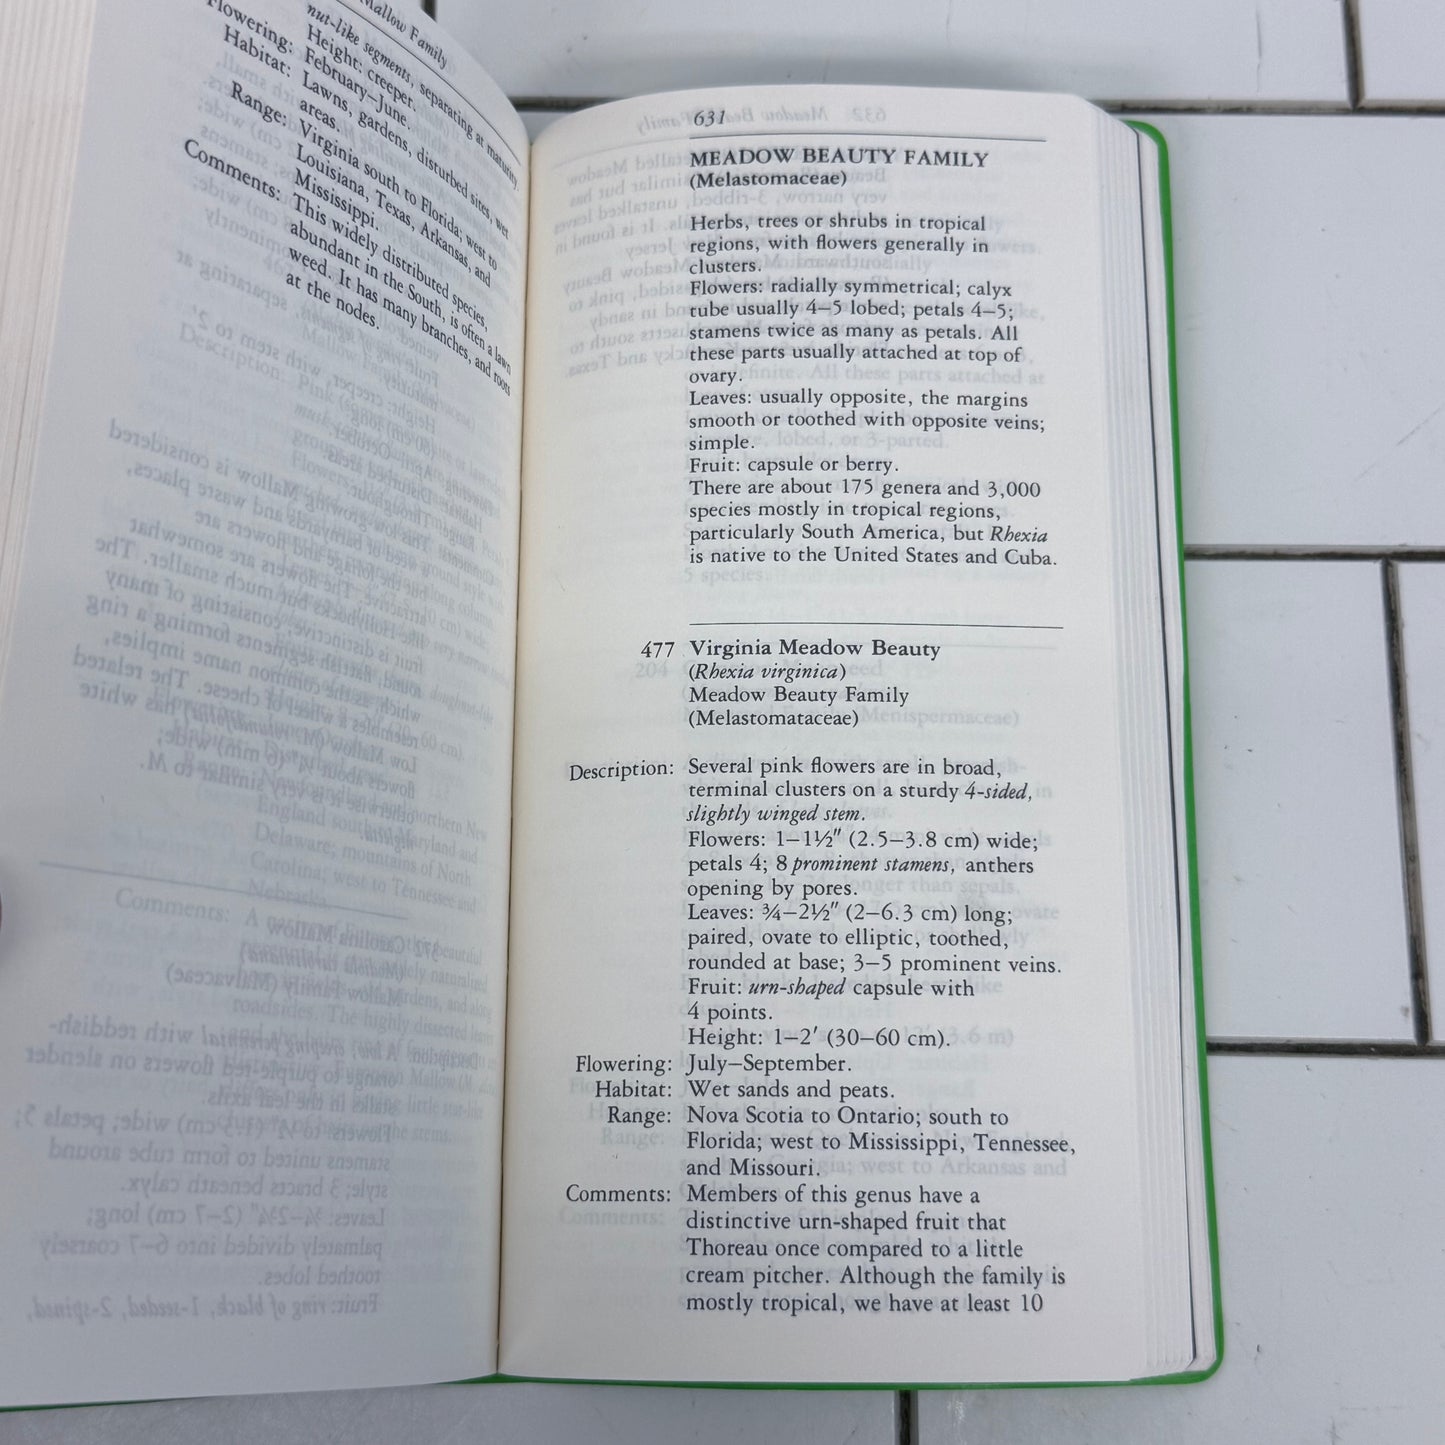 Mallow Family
nut-like segments, separating at maturity.
Height: creeper.
Flowering: February–June.
Habitat: Lawns, gardens, disturbed sites, wet
areas.
Range: Virginia south to Florida; west to
Louisiana, Texas, Arkansas, and
Mississippi.
Comments: This widely distributed species,
abundant in the South, is often a lawn
weed. It has many branches, and roots
at the nodes.
631
MEADOW BEAUTY FAMILY
(Melastomaceae)
Herbs, trees or shrubs in tropical
regions, with flowers generally in
clusters.
Flowers: radially symmetrical; calyx
tube usually 4–5 lobed; petals 4–5;
stamens twice as many as petals. All
these parts usually attached at top of
ovary.
Leaves: usually opposite, the margins
smooth or toothed with opposite veins;
simple.
Fruit: capsule or berry.
There are about 175 genera and 3,000
species mostly in tropical regions,
particularly South America, but Rhexia
is native to the United States and Cuba.
477 Virginia Meadow Beauty
(Rhexia virginica)
Meadow Beauty Family
(Melastomataceae)
Description: Several pink flowers are in broad,
terminal clusters on a sturdy 4-sided,
slightly winged stem.
Flowers: 1–1½" (2.5–3.8 cm) wide;
petals 4; 8 prominent stamens, anthers
opening by pores.
Leaves: ¾–2½" (2–6.3 cm) long;
paired, ovate to elliptic, toothed,
rounded at base; 3–5 prominent veins.
Fruit: urn-shaped capsule with
4 points.
Height: 1–2' (30–60 cm).
Flowering: July–September.
Habitat: Wet sands and peats.
Range: Nova Scotia to Ontario; south to
Florida; west to Mississippi, Tennessee,
and Missouri.
Comments: Members of this genus have a
distinctive urn-shaped fruit that
Thoreau once compared to a little
cream pitcher. Although the family is
mostly tropical, we have at least 10